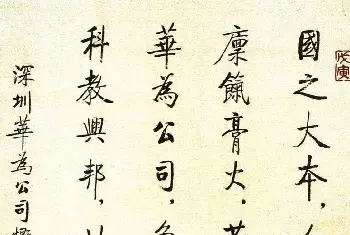 戊寅
國之大本，
廩餼膏火，
華為公司，
科教興邦，
深圳華為公司